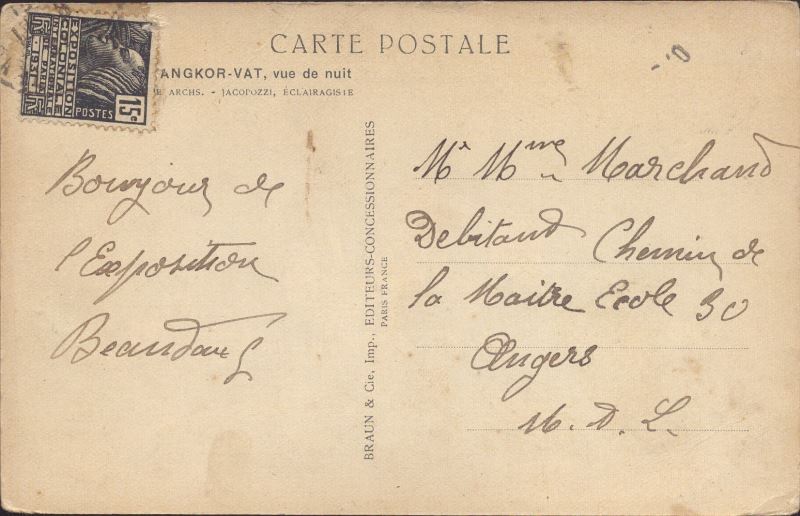 CARTE POSTALE
ANGKOR-VAT, vue de nuit
ARCHS. - JACOPOZZI, ÉCLAIRAGISTE
EXPOSITION
COLONIALE
INTERNATIONALE
DE PARIS
1931
POSTES
15c
Bonjour de
l'Exposition
BRAUN & Cie, Imp., EDITEURS-CONCESSIONNAIRES
PARIS FRANCE
Mr Mme Marchand
Debitand Chemin de
la Maitre Ecole 30
Angers
M. D. L.